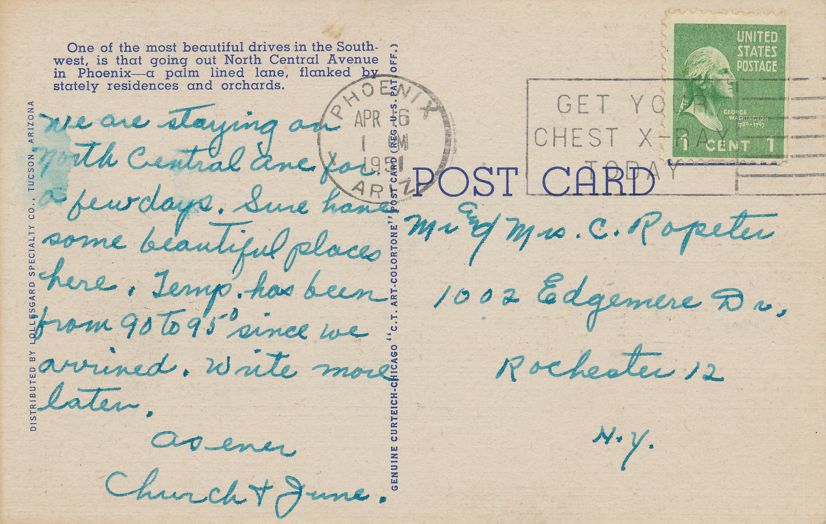 One of the most beautiful drives in the South-
west, is that going out North Central Avenue
in Phoenix—a palm lined lane, flanked by
stately residences and orchards.
We are staying on
North Central Ave for
a few days. Sure have
some beautiful places
here. Temp. has been
from 90 to 95° since we
arrived. Write more
later.
As ever
Church & June.
DISTRIBUTED BY LOLLESGARD SPECIALTY CO., TUCSON, ARIZONA
GENUINE CURTEICH-CHICAGO "C.T. ART-COLORTONE" POST CARD (REG. U.S. PAT. OFF.)
PHOENIX
APR 6
1 M
1951
ARIZ
GET YO
CHEST X-RAY
TODAY
UNITED
STATES
POSTAGE
GEORGE
WASHINGTON
1789-1797
1 CENT 1
POST CARD
Mr and Mrs. C. Ropeter
1002 Edgemere Dr.
Rochester 12
N.Y.